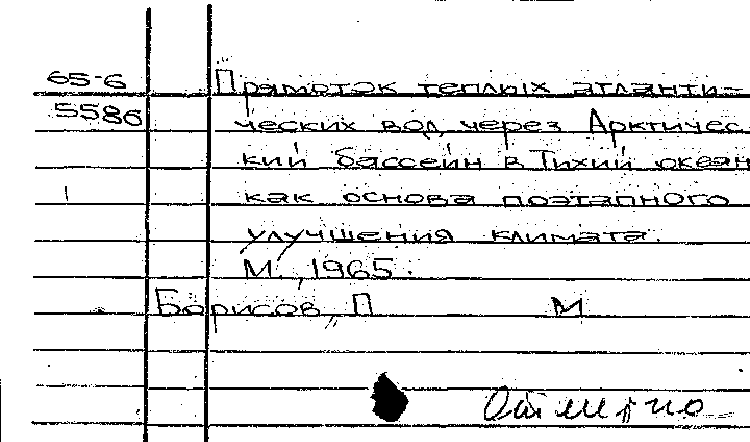 65-6
5586
Прямоток теплых атланти-
ческих вод через Арктичес
кий бассейн в Тихий океан
как основа поэтапного
улучшения климата.
М., 1965.
Борисов, П М